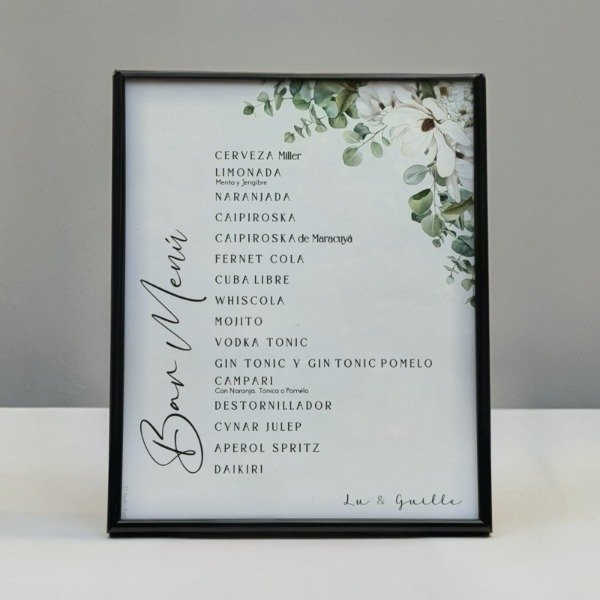 Bar Menú
CERVEZA Miller
LIMONADA
Menta y Jengibre
NARANJADA
CAIPIROSKA
CAIPIROSKA de Maracuyá
FERNET COLA
CUBA LIBRE
WHISCOLA
MOJITO
VODKA TONIC
GIN TONIC Y GIN TONIC POMELO
CAMPARI
Con Naranja, Tónica o Pomelo
DESTORNILLADOR
CYNAR JULEP
APEROL SPRITZ
DAIKIRI
Lu & Guille